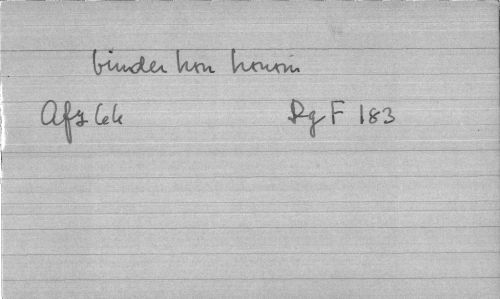 binder hon honom
Afzelk
Rg F 183